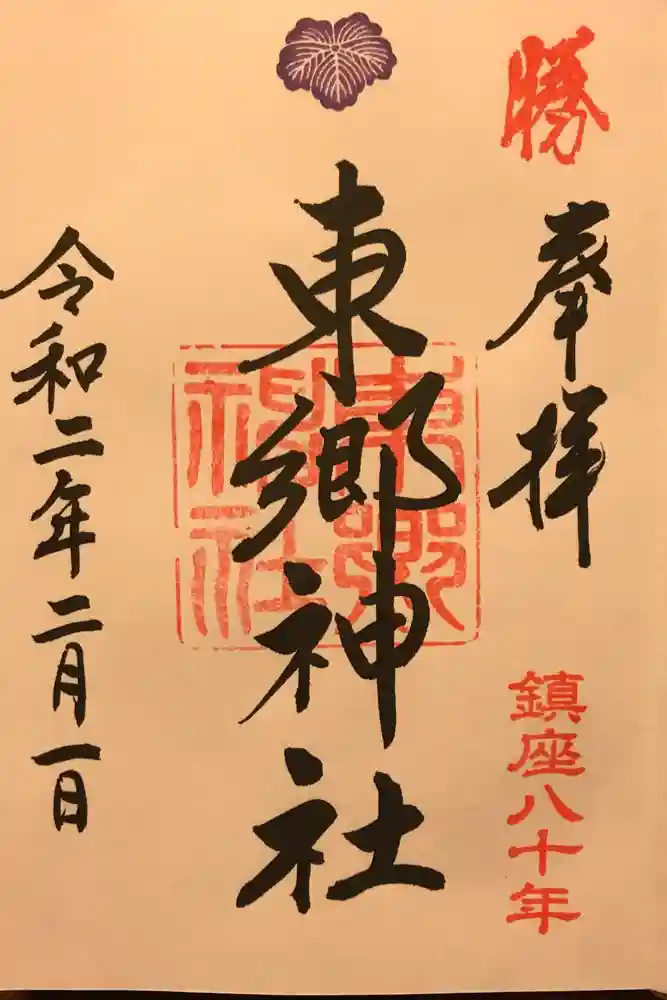 勝
奉拝
鎮座八十年
東郷神社
東郷神社
令和二年二月一日